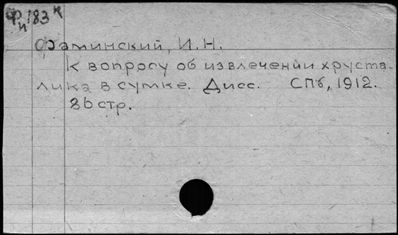 Фи 183 к
Фаминский, И.Н.
К вопросу об извлечении хруста-
лика в сумке. Дисс. СПб, 1912.
86 стр.